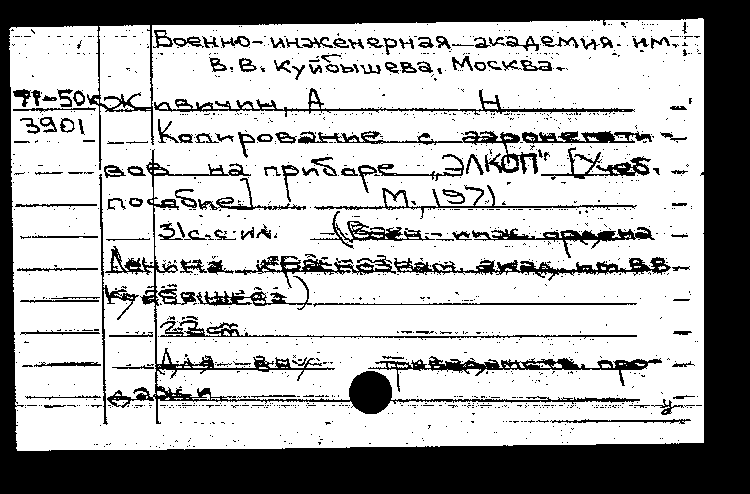 Военно-инженерная академия им.
В.В. Куйбышева, Москва.
71-50к Живичин, А Н
3901 Копирование с аэронегати-
вов на приборе „ЭЛКОП" [Учеб.
пособие]. М., 1971.
31с. с ил. (Воен.-инж. ордена
Ленина краснознам. акад. им. В.В.
Куйбышева)
22см.
Для вну внутриведомств. про-
дажи